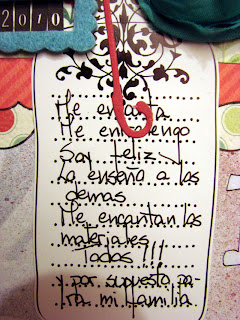 2010
Me encanta
Me entretengo
Soy feliz
La enseño a las
demas
Me encantan los
materiales
Todos !!!
y por supuesto pa-
ra mi familia